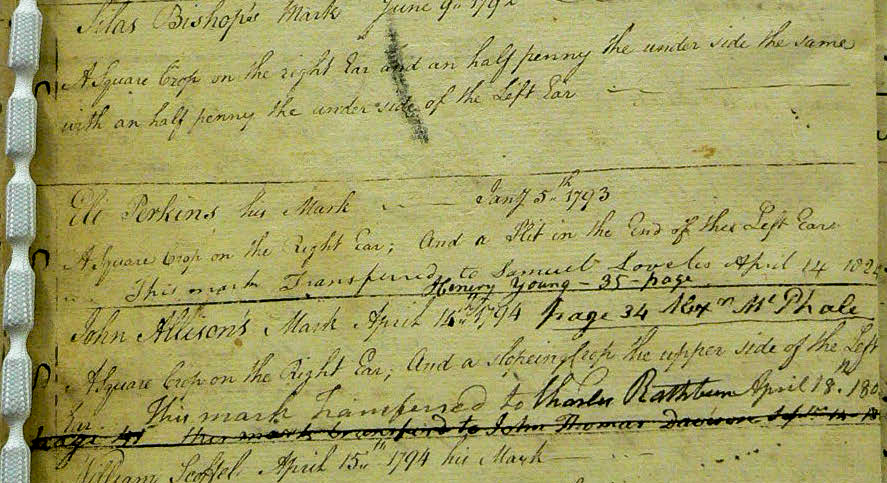 Silas Bishop's Mark June 9th 1792
A Square Crop on the right Ear and an half penny the under side the same
with an half penny the under side of the Left Ear
Eli Perkins his Mark Jany 5th 1793
A Square Crop on the Right Ear; And a Slit in the End of the Left Ear
This mark Transferred to Samuel Loveless April 14
Henery Young - 35 - page
John Allison's Mark April 14th 1794 page 34 Alexn McPhale
A Square Crop on the Right Ear; And a Slopeing Crop the upper side of the Left
Ear This mark Transferred to Charles Rathbun April 18th
page 41 this mark transferd to John Thomas Davison
William Scoffel April 15th 1794 his Mark